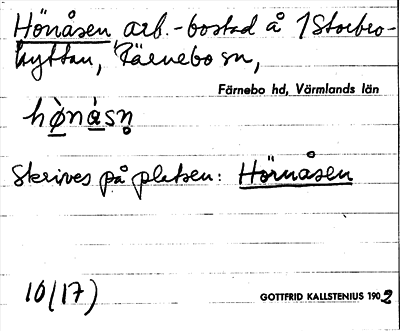 Hönåsen arb.-bostad å 1 Storbro-
hyttan, Färnebo sn,
Färnebo hd, Värmlands län
hø̀nåsn̥
Skrives på platsen: Hörnåsen
10(17)
GOTTFRID KALLSTENIUS 1902